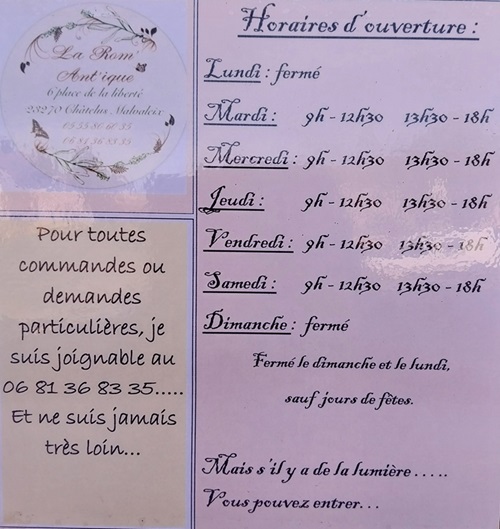 La Rom'
Ant'ique
6 place de la liberté
23270 Châtelus Malvaleix
06 81 36 83 35
Pour toutes
commandes ou
demandes
particulières, je
suis joignable au
06 81 36 83 35.....
Et ne suis jamais
très loin...
Horaires d'ouverture :
Lundi : fermé
Mardi : 9h - 12h30 13h30 - 18h
Mercredi : 9h - 12h30 13h30 - 18h
Jeudi : 9h - 12h30 13h30 - 18h
Vendredi : 9h - 12h30 13h30 - 18h
Samedi : 9h - 12h30 13h30 - 18h
Dimanche : fermé
Fermé le dimanche et le lundi,
sauf jours de fêtes.
Mais s'il y a de la lumière .....
Vous pouvez entrer...